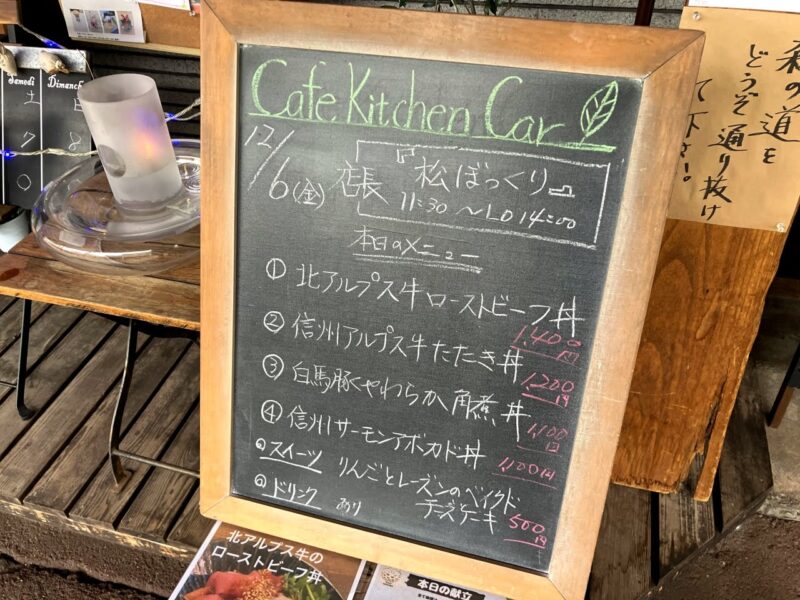 Cafe Kitchen Car
12/6(金) 店長 『松ぼっくり』
11:30 ~ LO 14:00
本日のメニュー
① 北アルプス牛ローストビーフ丼
1,400円
② 信州アルプス牛たたき丼
1,200円
③ 白馬豚やわらか角煮丼
1,100円
④ 信州サーモンアボカド丼
1,100円
スイーツ りんごとレーズンのベイクド
チーズケーキ 500円
ドリンク あり
Samedi
土
7
○
Dimanche
日
8
の道を
どうぞ通り抜け
て下さい!
北アルプス牛の
ローストビーフ丼
本日の献立